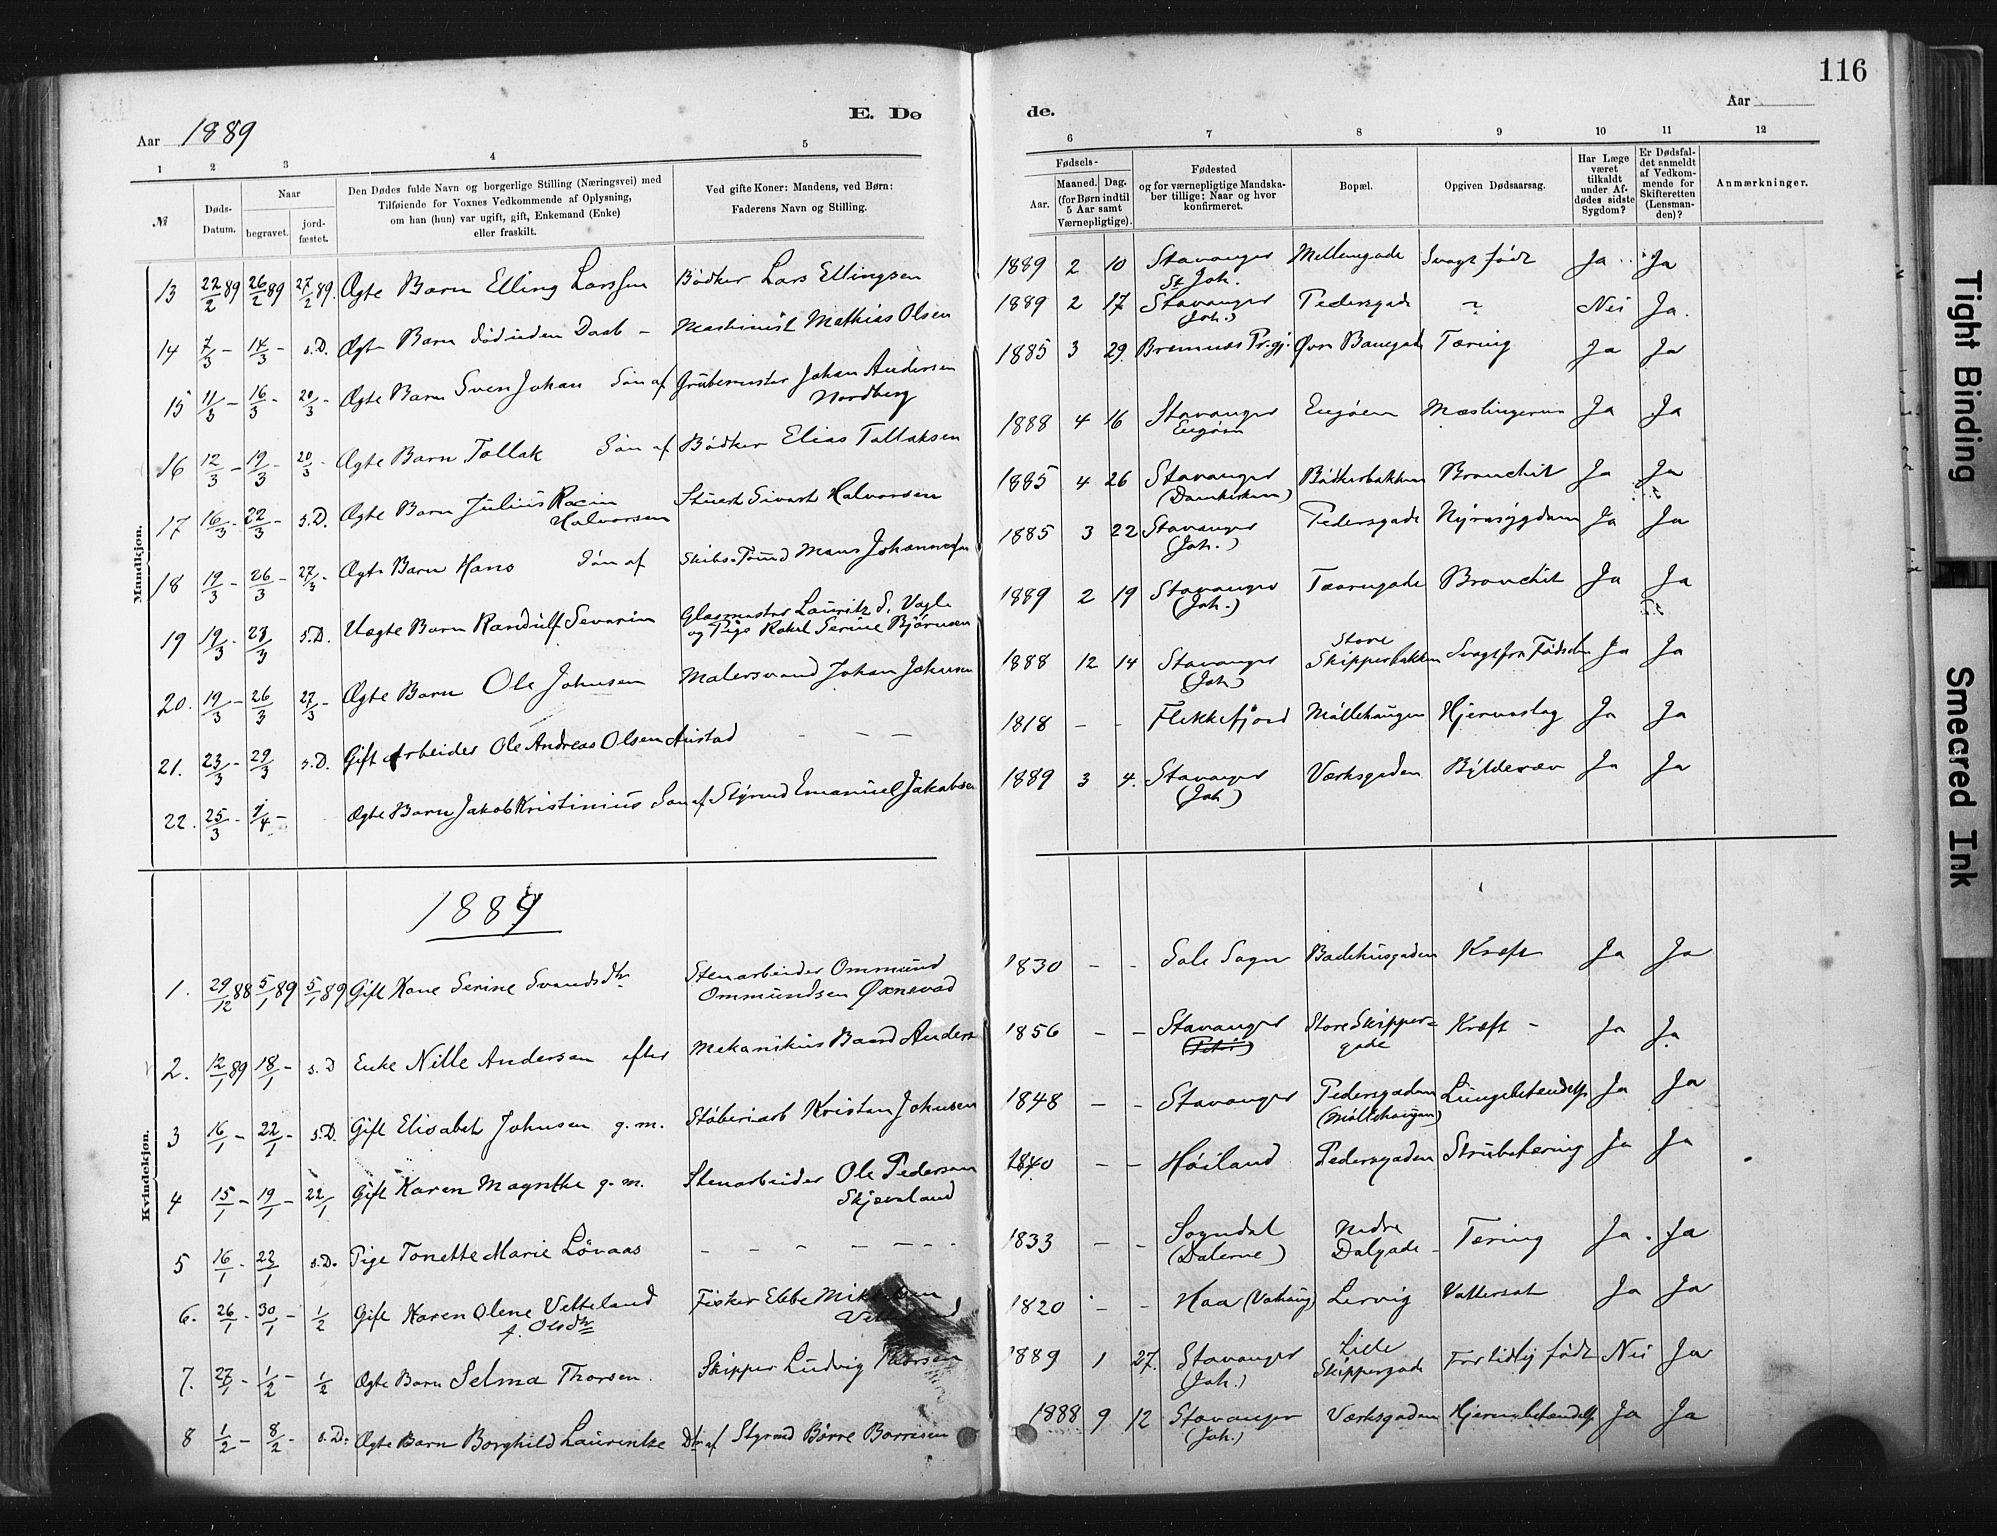 116
Aar 1889
E. Dø
de.
Aar
1 2 3 4 5
6 7 8 9 10 11 12
№
Døds-
Datum.
Naar
begravet.
jord-
fæstet.
Den Dødes fulde Navn og borgerlige Stilling (Næringsvei) med
Tilføiende for Voxnes Vedkommende af Oplysning,
om han (hun) var ugift, gift, Enkemand (Enke)
eller fraskilt.
Ved gifte Koner: Mandens, ved Børn:
Faderens Navn og Stilling.
Fødsels-
Aar.
Maaned. Dag.
(for Børn indtil
5 Aar samt
Værnepligtige).
Fødested
og for værnepligtige Mandska-
ber tillige: Naar og hvor
konfirmeret.
Bopæl.
Opgiven Dødsaarsag.
Har Læge
været
tilkaldt
under Af-
dødes sidste
Sygdom?
Er Dødsfal-
det anmeldt
af Vedkom-
mende for
Skifteretten
(Lensman-
den)?
Anmærkninger.
Mandkjøn.
13 22/2 89 26/2 89 27/2 89. Ægte Barn Elling Larssen Bödker Lars Ellingsen 1889 2 10 Stavanger St Joh. Møllegade Svagt født Ja Ja
14 7/3 - 14/3 - s.D. Ægte Barn död uden Daab - Maskinist Mathias Olsen 1889 2 17 Stavanger (Joh.) Pedersgade ? Nei Ja.
15 11/3 - 16/3 - 20/3 - Ægte Barn Sven Johan Sön af Grubemester Johan Andersen Nordberg 1885 3 29. Bremnes Pr.gj. Øvre Banegade Tæring Ja Ja
16 12/3 - 19/3 - 20/3 - Ægte Barn Tollak Sön af Bödker Elias Tollaksen 1888 4 16 Stavanger Engöen Engöen Mæslingerne Ja Ja
17 16/3 - 22/3 - s.D. Ægte Barn Julius Halvorsen Stuert Sivert Halvorsen 1885 4 26 Stavanger (Domkirken) Bödkerbakken Bronchit Ja Ja
18 19/3 - 26/3 - 27/3 - Ægte Barn Hans Sön af Skibs-Tömd Mans Johannessen 1885 3 22 Stavanger (Joh.) Pedersgade Nyresygdom Ja Ja
19 19/3 - 23/3 s.D. Uægte Barn Randulf Severin Glasmester Lauritz S. Vagle og Pige Rakel Serine Björnsen 1889 2 19 Stavanger (Joh.) Taarngade Bronchit Ja Ja
20. 19/3 - 26/3 27/3 - Ægte Barn Ole Johnsen Malersvend Johan Johnsen 1888 12 14 Stavanger (Joh) Store Skipperbakken Svag fra Födsel Ja Ja
21. 23/3 - 29/3 s.D. Gift Arbeider Ole Andreas Olsen Austad - - - 1818 - - Flekkefjord Möllehaugen Hjerneslag Ja Ja
22. 25/3 - 1/4 - Ægte Barn Jakob Kristinius Sön af Styrmd Emanuel Jakobsen 1889 3 4. Stavanger (Joh) Verksgaden Byldevæv Ja Ja
Kvindekjøn.
1889
1. 29/12 88 5/1 89 5/1 89 Gift Kone Serine Svendsdtr Stenarbeider Ommund Ommundsen Øxnevad 1830 - - Sole Sogn Badehusgaden Kræft Ja Ja
2. 12/1 89 18/1 - s.D Enke Nille Andersen efter Mekanikus Baard Anders 1856 - - Stavanger (Petri) Store Skipper= gade Kræft - Ja Ja
3 16/1 - 22/1 - s.D. Gift Elisabet Johnsen g.m. Støberiarb Kristen Johnsen 1848 - - Stavanger Pedersgaden (Möllehaugen) Lungebetændelse Ja Ja
4 15/1 - 19/1 - 22/1 Gift Karen Magrethe g.m. Stenarbeider Ole Pedersen Skjæveland 1840 - - Höiland Pedersgaden Strubetæring Ja Ja
5 16/1 - 22/1 s.D. Pige Tonette Marie Lövaas - - - - - - 1833 - - Sogndal (Dalerne) Nedre Dalgade - Tæring Ja. Ja
6. 26/1 - 30/1 - 1/2 Gift Karen Olene Vetteland f. Olsdtr Fisker Ebbe 1820 - - Haa (Varhaug) Lervig Vattersot Ja Ja
7. 27/1 - 1/2 - 1/2 Ægte Barn Selma Thorsen. Skipper Ludvig Thorsen 1889 1 27. Stavanger (Joh.) Lille Skippergade For tidlig født Nei Ja
8 1/2 - 8/2 - s.D. Ægte Barn Borghild Laurentze Dtr af Styrmd Börre Borresen 1888 9 12 Stavanger (Joh.) Verksgaden Hjernebetændelse Ja Ja
Tight Binding
Smeared Ink